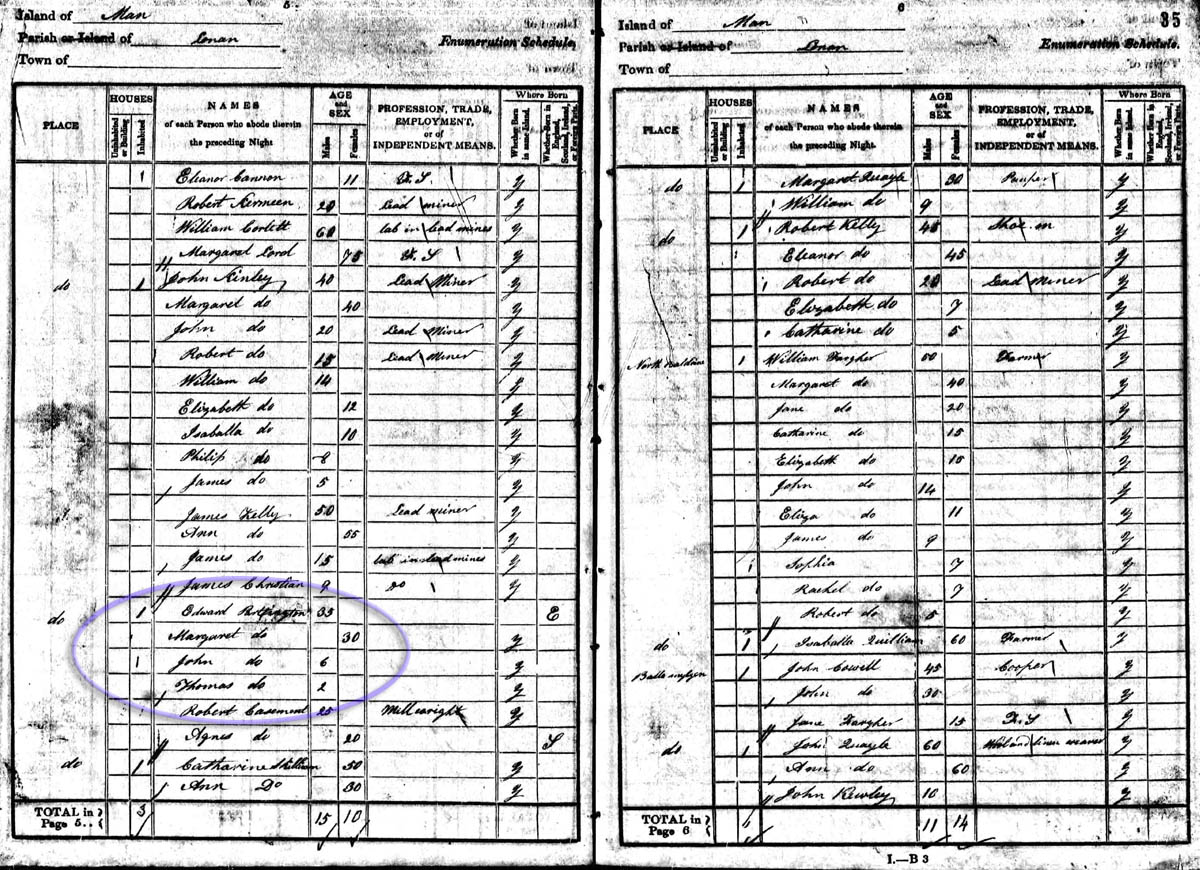 5
Island of Man
Parish or Island of Lonan
Enumeration Schedule.
Town of
PLACE
HOUSES
Uninhabited or Building
Inhabited
NAMES
of each Person who abode therein
the preceding Night.
AGE
and
SEX
Males
Females
PROFESSION, TRADE,
EMPLOYMENT,
or of
INDEPENDENT MEANS.
Where Born
Whether Born in same Island.
Whether Born in England, Scotland, Ireland, or Foreign Parts.
1 Eleanor Cannon 11 F. S. y
Robert Kermeen 20 Lead miner y
William Corlett 60 lab in lead mines y
Margaret Lord 75 F. S y
do 1 John Kinley 40 Lead Miner y
Margaret do 40 y
John do 20 Lead Miner y
Robert do 15 Lead Miner y
William do 14 y
Elizabeth do 12 y
Isaballa do 10 y
Philip do 8 y
James do 5 y
James Kelly 50 Lead miner y
Ann do 55 y
James do 15 lab in lead mines y
James Christian 9 Do y
do 1 Edward 35 E
Margaret do 30 y
John do 6 y
Thomas do 2 y
Robert Casement 25 Millwright y
Agnes do 20 S
do 1 Catharine Skillian 50 y
Ann Do 30 y
TOTAL in
Page 5.. 3 15 10
6
35
Island of Man
Parish or Island of Lonan
Enumeration Schedule.
Town of
PLACE
HOUSES
Uninhabited or Building
Inhabited
NAMES
of each Person who abode therein
the preceding Night.
AGE
and
SEX
Males
Females
PROFESSION, TRADE,
EMPLOYMENT,
or of
INDEPENDENT MEANS.
Where Born
Whether Born in same Island.
Whether Born in England, Scotland, Ireland, or Foreign Parts.
do 1 Margaret Quayle 30 Pauper y
William do 9 y
do 1 Robert Kelly 45 Shoe m y
Eleanor do 45 y
Robert do 20 Lead Miner y
Elizabeth do 7 y
Catharine do 5 y
North 1 William Fargher Farmer y
Margaret do 40 y
Jane do 20 y
Catharine do 15 y
Elizabeth do 15 y
John do 14 y
Eliza do 11 y
James do 9 y
Sophia 7 y
Rachel do 7 y
Robert do 5 y
do 1 Isaballa Quilliam 60 Farmer y
1 John Cowell 45 Cooper y
John do 30 y
Jane Fargher 15 F. S y
do 1 John Quayle 60 Wool and linen weaver y
Ann do 60 y
John Kewley 10 y
TOTAL in
Page 6 11 14
I.—B 3